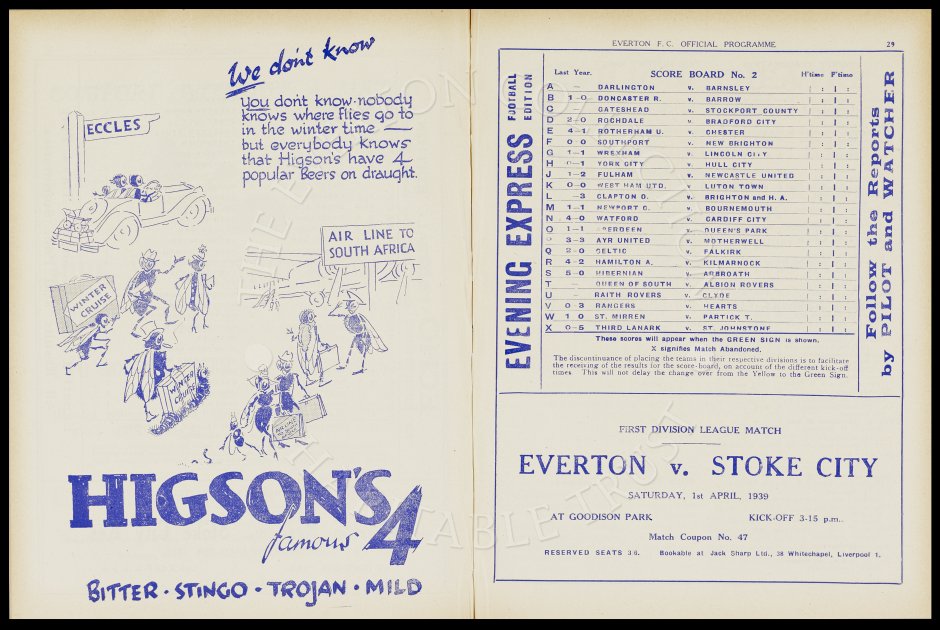 We don't know
You don't know - nobody
knows where flies go to
in the winter time —
but everybody knows
that Higson's have 4
popular Beers on draught.
ECCLES
AIR LINE TO
SOUTH AFRICA
WINTER
CRUISE
WINTER
HIGSON'S
famous 4
BITTER · STINGO · TROJAN · MILD
EVERTON F.C. OFFICIAL PROGRAMME
29
EVENING EXPRESS
FOOTBALL
EDITION
Last Year. SCORE BOARD No. 2 H'time F'time
A — DARLINGTON v. BARNSLEY
B 1-0 DONCASTER R. v. BARROW
C GATESHEAD v. STOCKPORT COUNTY
D 2-0 ROCHDALE v. BRADFORD CITY
E 4-1 ROTHERHAM U. v. CHESTER
F 0-0 SOUTHPORT v. NEW BRIGHTON
G 1-1 WREXHAM v. LINCOLN CITY
H -1 YORK CITY v. HULL CITY
J 1-2 FULHAM v. NEWCASTLE UNITED
K 0-0 WEST HAM UTD. v. LUTON TOWN
L -3 CLAPTON O. v. BRIGHTON and H. A.
M 1-1 NEWPORT C. v. BOURNEMOUTH
N 4-0 WATFORD v. CARDIFF CITY
O 1-1 ABERDEEN v. QUEEN'S PARK
3-3 AYR UNITED v. MOTHERWELL
Q 2-0 CELTIC v. FALKIRK
R 4-2 HAMILTON A. v. KILMARNOCK
S 5-0 HIBERNIAN v. ARBROATH
T — QUEEN OF SOUTH v. ALBION ROVERS
U RAITH ROVERS v. CLYDE
V 0-3 RANGERS v. HEARTS
W 1-0 ST. MIRREN v. PARTICK T.
X 0-5 THIRD LANARK v. ST. JOHNSTONE
These scores will appear when the GREEN SIGN is shown.
X signifies Match Abandoned.
The discontinuance of placing the teams in their respective divisions is to facilitate
the receiving of the results for the score-board, on account of the different kick-off
times. This will not delay the change over from the Yellow to the Green Sign.
Follow the Reports
by PILOT and WATCHER
FIRST DIVISION LEAGUE MATCH
EVERTON v. STOKE CITY
SATURDAY, 1st APRIL, 1939
AT GOODISON PARK KICK-OFF 3-15 p.m..
Match Coupon No. 47
RESERVED SEATS 3/6. Bookable at Jack Sharp Ltd., 38 Whitechapel, Liverpool 1.